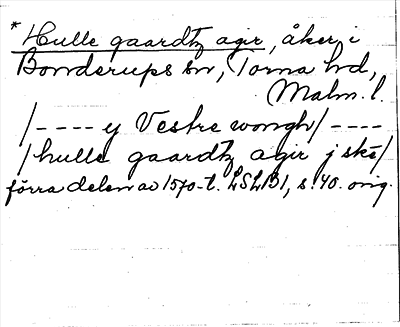 * Hulle gaardtz agir, åker i
Bonderups sn, Torna hd,
Malm. l.
/---- y Vestre wongh/----
/hulle gaardtz agir j skē/
förra delen av 1570-t. LSLB1, s. 40. orig.